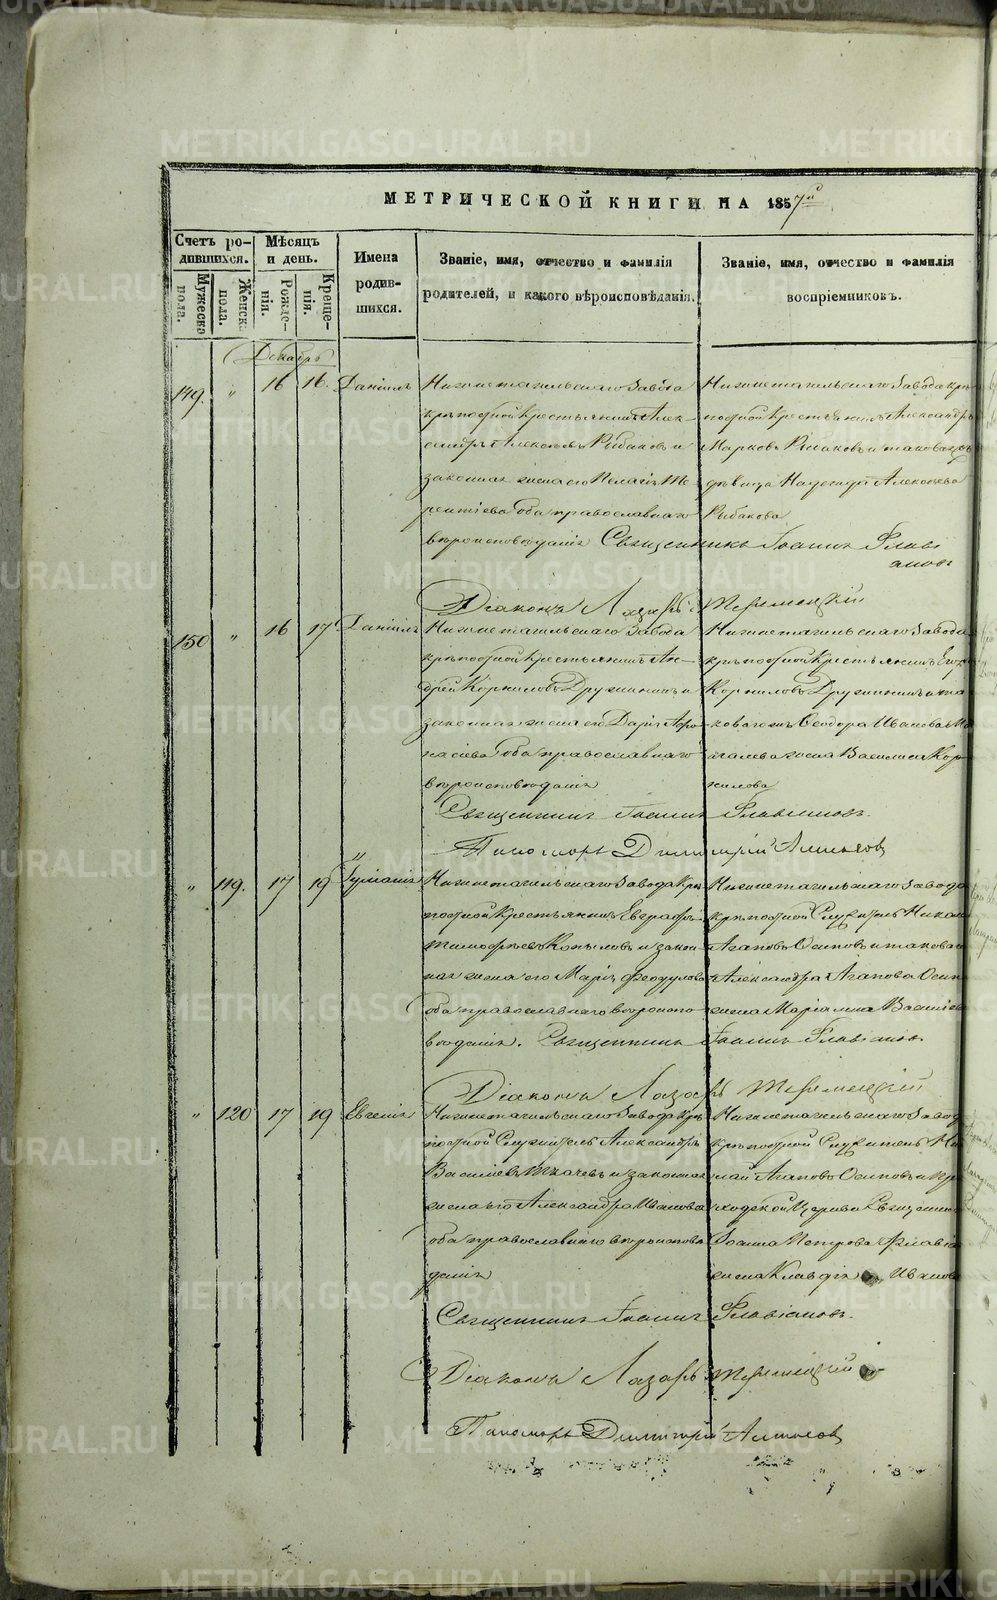 МЕТРИЧЕСКОЙ КНИГИ НА 1857й
Счетъ ро-
дившихся.
Мужеска
пола.
Женска
пола.
Мѣсяцъ
и день.
Рожде-
нія.
Креще-
нія.
Имена
родив-
шихся.
Званіе, имя, отчество и фамилія
родителей, и какого вѣроисповѣданія.
Званіе, имя, отчество и фамилія
воспріемниковъ.
Декабрь
149. " 16 16. Даніилъ
Нижнетагильскаго Завода
крѣпостной крестьянинъ Алек-
сандръ Алексѣевъ Рыбаковъ и
законная жена его Пелагія Те-
рентіева оба православнаго
вѣроисповѣданія
Нижнетагильскаго Завода крѣ-
постной крестьянинъ Александръ
Марковъ Рыбаковъ и таковагожъ
дѣвица Надежда Алексѣева
Рыбакова
Священникъ Іоаннъ Флавi
ановъ
Діаконъ Лазарь
150 " 16 17 Даніилъ
Нижнетагильскаго Завода
крѣпостной крестьянинъ Ан-
дрей Корниловъ Дружининъ и
законная жена его Дарія Афо-
насіева оба православнаго
вѣроисповѣданія
Нижнетагильскаго Завода
крѣпостной крестьянинъ Егоръ
Корниловъ Дружининъ и та-
ковагожъ Ѳеодора Иванова
жена Василиса Кор-
нилова
Священникъ Іоаннъ Флавіановъ.
Пономарь Димитрій
" 119. 17 19 Іуліанія
Нижнетагильскаго Завода крѣ-
постной крестьянинъ Евграфъ
Тимофѣевъ Копыловъ и закон-
ная жена его Марія Ѳеодулова
оба православнаго вѣроиспо-
вѣданія.
Нижнетагильскаго Завода
крѣпостной Служитель Никол
Агаповъ Осиповъ и таковаго
Александра Агапова Осип
жена Маріамна Василіев
Священникъ Іоаннъ Флавіановъ
Діаконъ Лазарь
" 120 17 19 Евгенія
Нижнетагильскаго Завода крѣ-
постной Служитель Александръ
Василіевъ Ткачевъ и законная
жена его Александра Иванова
оба православнаго вѣроисповѣ
данія
Нижнетагильскаго Завод
крѣпостной Служитель Ни
лай Агаповъ Осиповъ и пр
ходской Церкви Священни
Іоанна Петрова Флавіа
жена Клавдія Иванов
Священникъ Іоаннъ Флавіановъ.
Діаконъ Лазарь
Пономарь Димитрій
METRIKI.GASO-URAL.RU